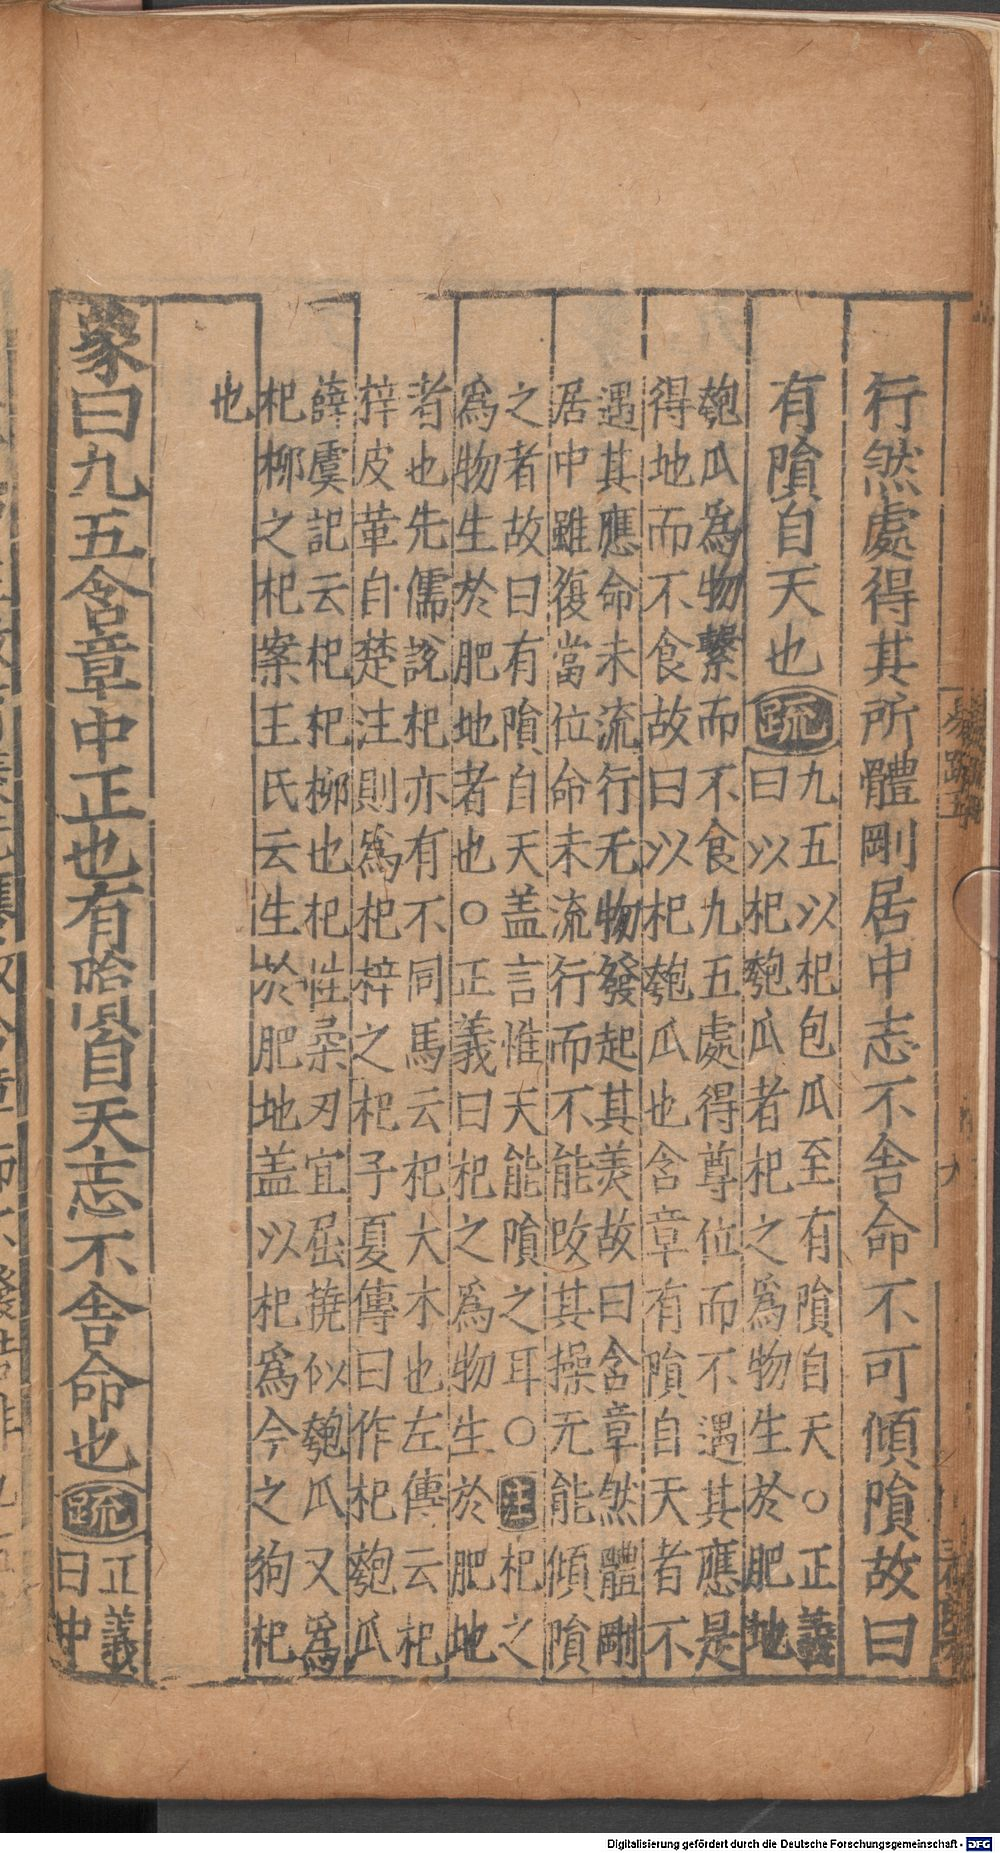 行然處得其所體剛居中志不舍命不可傾隕故曰
有隕自天也疏
九五以杞包瓜至有隕自天○正義
曰以杞匏瓜者杞之爲物生於肥地
匏瓜爲物繫而不食九五處得尊位而不遇其應是
得地而不食故曰以杞匏瓜也含章有隕自天者不
遇其應命未流行无物發起其美故曰含章然體剛
居中雖復當位命未流行而不能改其操无能傾隕
之者故曰有隕自天盖言惟天能隕之耳○注杞之
爲物生於肥地者也○正義曰杞之爲物生於肥地
者也先儒說杞亦有不同馬云杞大木也左傳云杞
梓皮革自楚注則爲杞梓之杞子夏傳曰作杞匏瓜
薛虞記云杞杞柳也杞性柔刃宜屈撓似匏瓜又爲
杞柳之杞案王氏云生於肥地盖以杞爲今之狗杞
也
象曰九五含章中正也有隕自天志不舍命也疏
正義
曰中
Digitalisierung gefördert durch die Deutsche Forschungsgemeinschaft - DFG